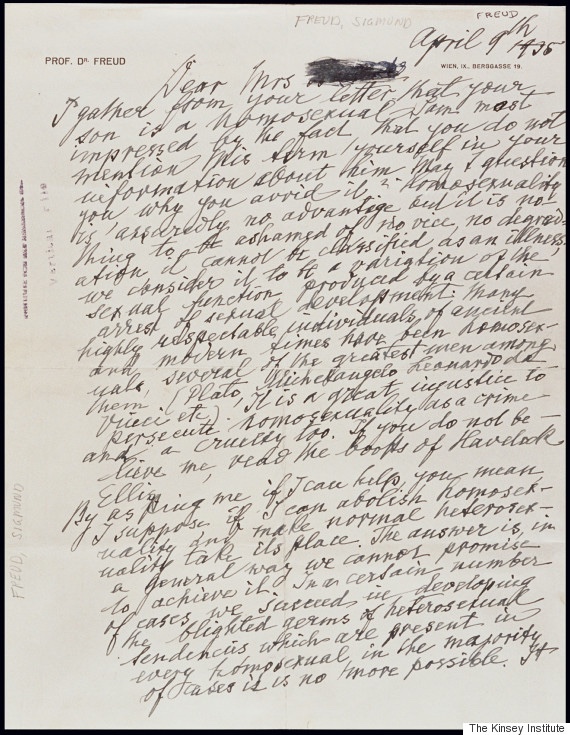 FREUD, SIGMUND
FREUD
April 9th 1935
PROF. DR. FREUD
WIEN, IX., BERGGASSE 19.
Dear Mrs
I gather from your letter that your
son is a homosexual. I am most
impressed by the fact, that you do not
mention this term yourself in your
information about him. May I question
you why you avoid it? Homosexuality
is assuredly no advantage but it is no-
thing to be ashamed of, no vice, no degrad-
ation, it cannot be classified as an illness;
we consider it to be a variation of the
sexual function produced by a certain
arrest of sexual development. Many
highly respectable individuals of ancient
and modern times have been homosex-
uals, several of the greatest men among
them. (Plato, Michelangelo, Leonardo da
Vinci etc). It is a great injustice to
persecute homosexuality as a crime
and a cruelty too. If you do not be-
lieve me, read the books of Havelock
Ellis.
By asking me if I can help, you mean
I suppose, if I can abolish homosex-
uality and make normal heterosex-
uality take its place. The answer is, in
a general way we cannot promise
to achieve it. In a certain number
of cases we succeed in developing
the blighted germs of heterosexual
tendencies which are present in
every homosexual, in the majority
of cases it is no more possible. It
FREUD, SIGMUND
The Kinsey Institute